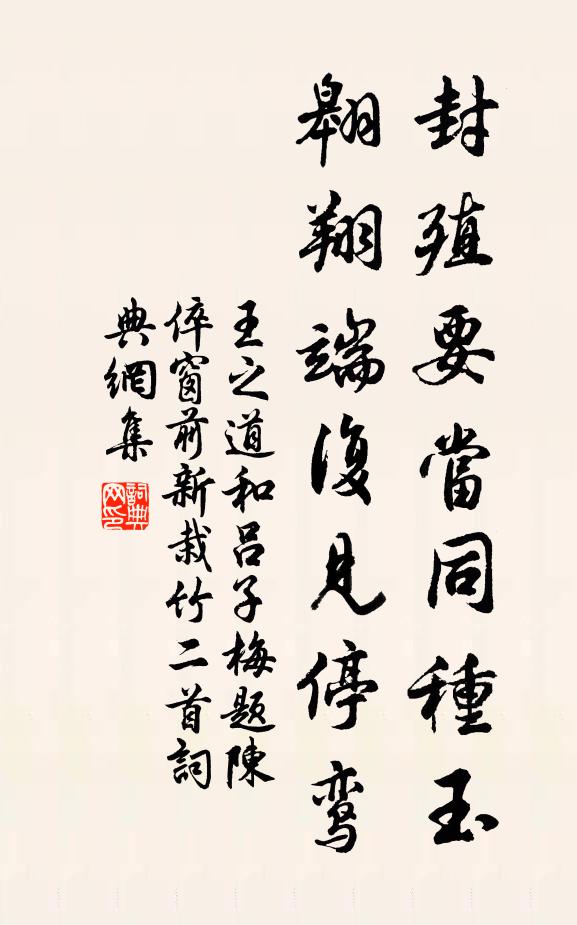 封殖要當同種玉
翱翔端復見停鸾
王之道和呂子梅題陳
倅窗前新栽竹二首詞
典網集
詞典网印